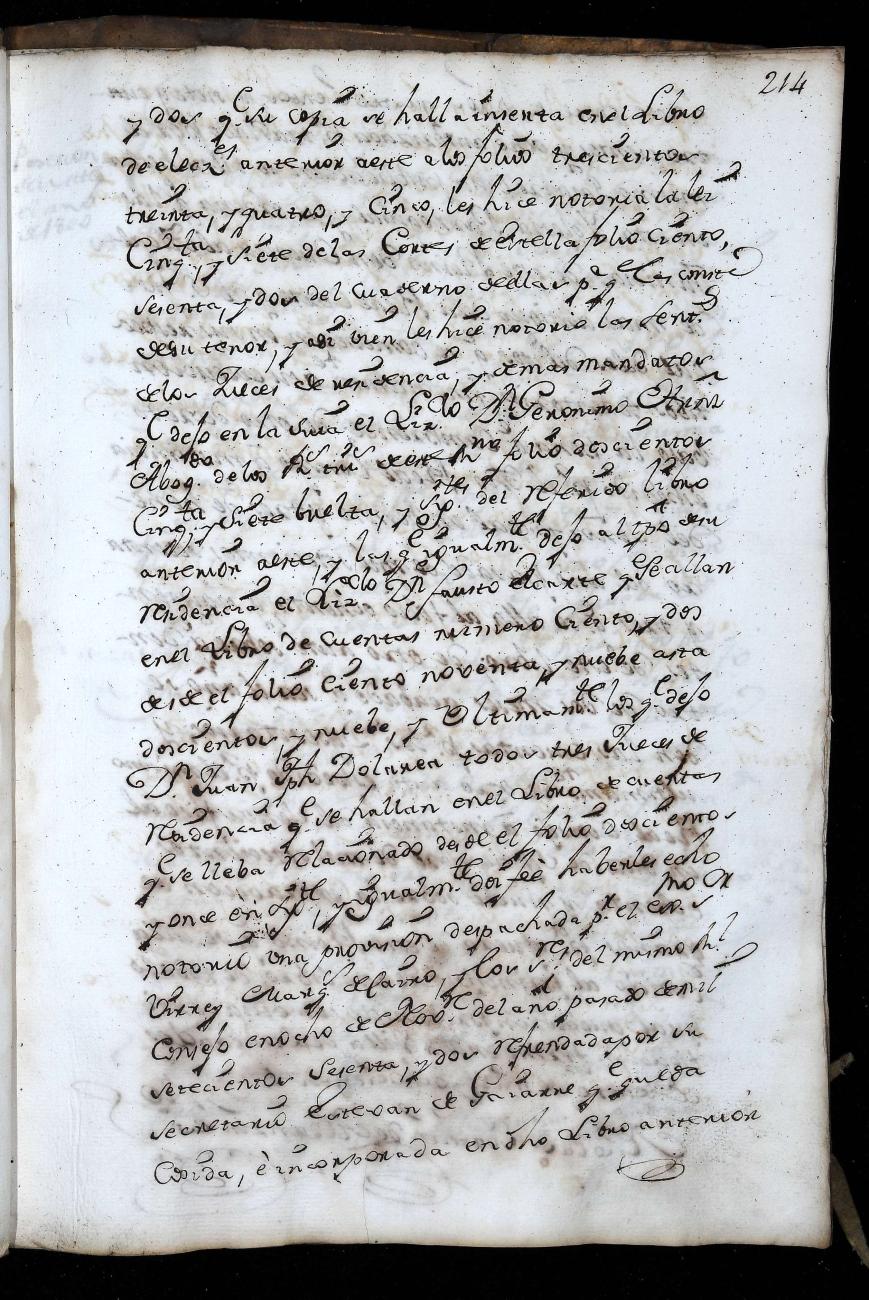 214
y dos q.e su copia se halla insenta en el Libro
de elecz.es anterior a este a los folios trescientos
treinta, y quatro, y Cinco, les hice notoria la lei
Cinq.ta, y siete de las Cortes de Estella folio Ciento,
sesenta, y dos del cuaderno de ellas p.a q.e les conste
de su tenor, y asi bien les hice notorio las Sent.s
de los Jueces de residencia, y demas mandatos
q.e dejo en la suia el Liz.do D.n Geronimo
Abog.do de los R.s tri.s de este R.no folio doscientos
Cinq.ta, y Siete buelta, y sig.tes del referido libro
anterior a este, y las q.e igualm.te dejo al tpo de su
residencia el Liz.do D.n Fausto Elcarte q.e se allan
en el Libro de Cuentas numero Ciento, y dos
desde el folio Ciento noventa, y nuebe asta
doscientos, y nuebe, y Ultimam.te los q.e dejo
D.n Juan Jph Dolarea todos tres Jueces de
residencia q.e se hallan en el Libro de cuentas
q.e se lleba relacionado desde el folio doscientos
y once en, y igualm.te doi feè haberles echo
notorio una provision despachada p.r el ex.mo S.r
Virrey Marq.s de Cairo, y los S.res del mismo R.l
Consejo en ocho de Nov.e del año pasado de mil
setecientos Sesenta, y dos refrendada por su
secretario Estevan de Gaiarre q.e queda
Cosida, è incorporada en dho Libro anterior